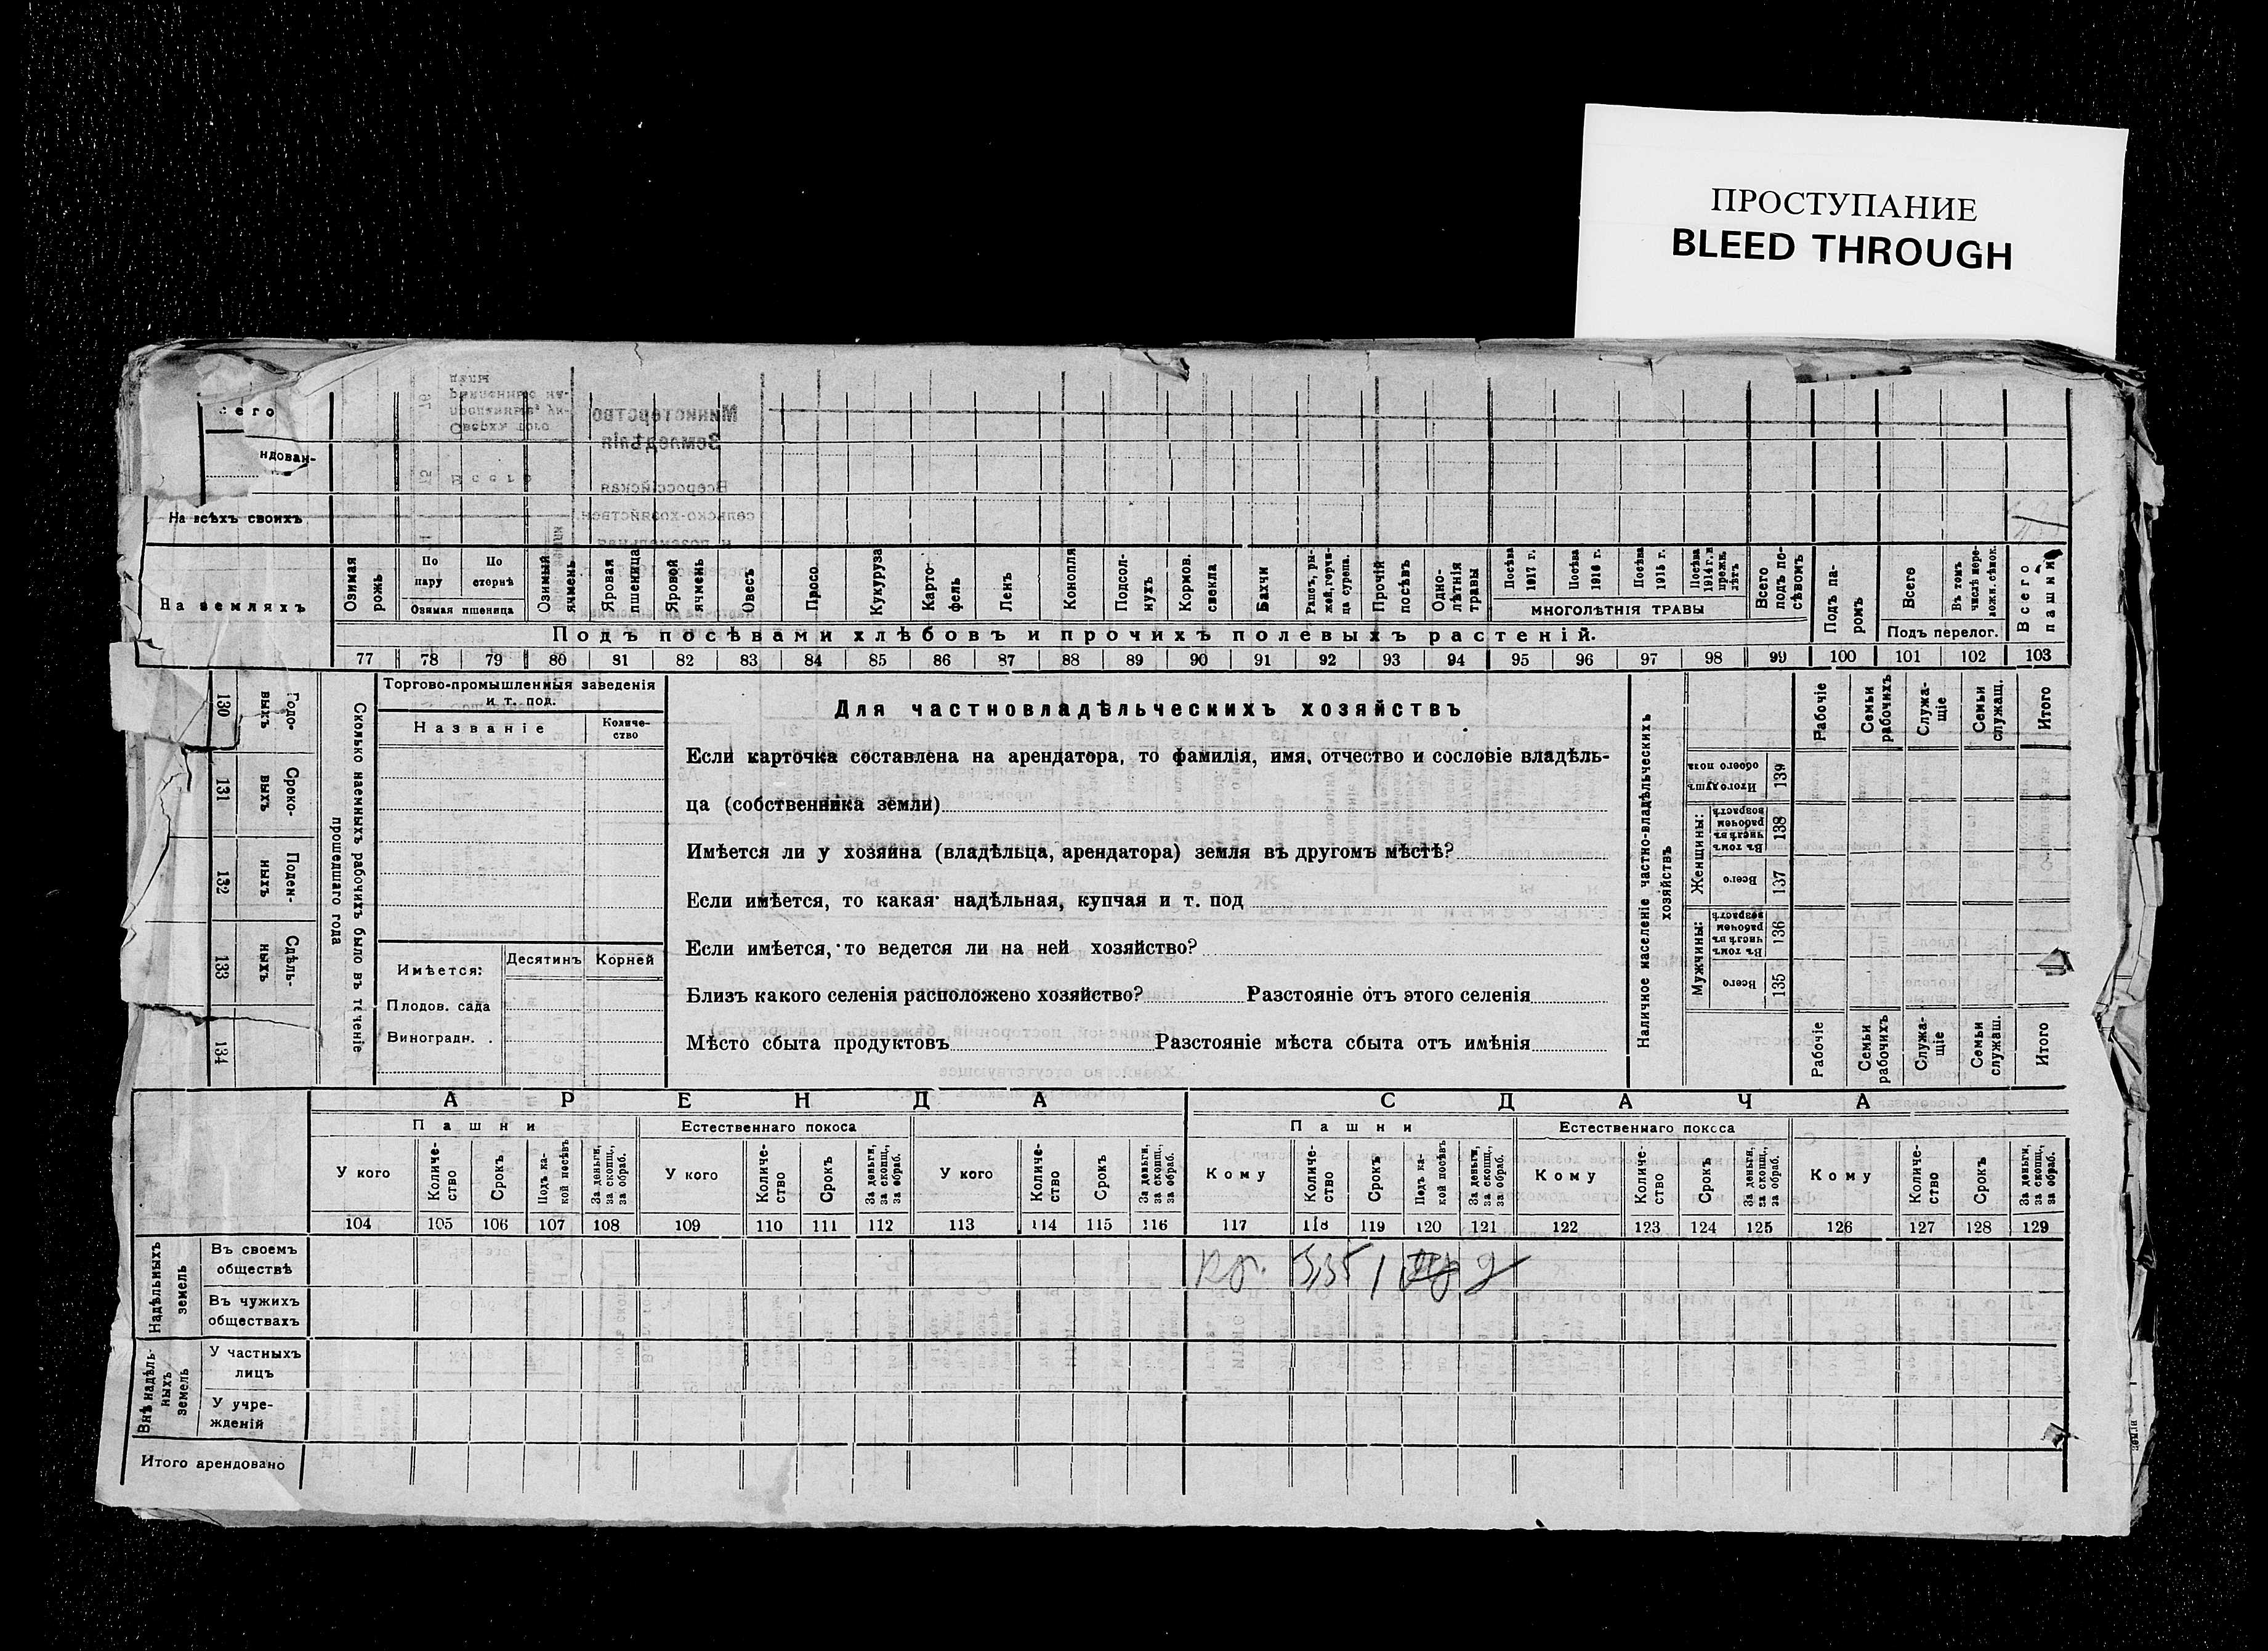 ПРОСТУПАНИЕ
BLEED THROUGH
его
ндован-
На всѣхъ своихъ
На земляхъ
Озимая рожь
По пару
По стернѣ
Озимая пшеница
Озимый ячмень
Яровая пшеница
Яровой ячмень
Овесъ
Просо
Кукуруза
Карто-фель
Ленъ
Конопля
Подсол-нухъ
Кормов. свекла
Бахчи
Рапсъ, ры-жей, горчи-ца сурепа.
Прочій посѣвъ
Одно-лѣтнія травы
Посѣва 1917 г.
Посѣва 1916 г.
Посѣва 1915 г.
Посѣва 1914 г. и прежн. лѣтъ
МНОГОЛѢТНІЯ ТРАВЫ
Всего подъ по-сѣвомъ
Подъ па-ромъ
Всего
Въ томъ числѣ пере-ложн. сѣнок.
Подъ перелог.
Всего пашни
Подъ посѣвами хлѣбовъ и прочихъ полевыхъ растеній.
77 78 79 80 81 82 83 84 85 86 87 88 89 90 91 92 93 94 95 96 97 98 99 100 101 102 103
130 Годо-выхъ
131 Сроко-выхъ
132 Поден-ныхъ
133 Сдѣль-ныхъ
134
Сколько наемныхъ рабочихъ было въ теченіе прошедшаго года
Торгово-промышленныя заведенія
и т. под.
Названіе
Количе-ство
Имѣется:
Десятинъ
Корней
Плодов. сада
Виноградн. .
Для частновладѣльческихъ хозяйствъ
Если карточка составлена на арендатора, то фамилія, имя, отчество и сословіе владѣль-
ца (собственника земли)
Имѣется ли у хозяина (владѣльца, арендатора) земля въ другомъ мѣстѣ?
Если имѣется, то какая: надѣльная, купчая и т. под
Если имѣется, то ведется ли на ней хозяйство?
Близъ какого селенія расположено хозяйство? Разстояніе отъ этого селенія
Мѣсто сбыта продуктовъ Разстояніе мѣста сбыта отъ имѣнія
Наличное населеніе частно-владѣльческихъ хозяйствъ
Рабочіе
Семьи рабочихъ
Служа-щіе
Семьи служащ.
Итого
Итого душъ обоего пола 139
Женщины:
Въ томъ числѣ въ рабочемъ возрастѣ 138
Всего 137
Мужчины:
Въ томъ числѣ въ рабочемъ возрастѣ 136
Всего 135
Рабочіе
Семьи рабочихъ
Служа-щіе
Семьи служащ.
Итого
АРЕНДА
СДАЧА
Пашни
Естественнаго покоса
Пашни
Естественнаго покоса
У кого
Количе-ство
Срокъ
Подъ ка-кой посѣвъ
За деньги, за скопщ., за обраб.
У кого
Количе-ство
Срокъ
За деньги, за скопщ., за обраб.
У кого
Количе-ство
Срокъ
За деньги, за скопщ., за обраб.
Кому
Количе-ство
Срокъ
Подъ ка-кой посѣвъ
За деньги, за скопщ., за обраб.
Кому
Количе-ство
Срокъ
За деньги, за скопщ., за обраб.
Кому
Количе-ство
Срокъ
За деньги, за скопщ., за обраб.
104 105 106 107 108 109 110 111 112 113 114 115 116 117 118 119 120 121 122 123 124 125 126 127 128 129
Надѣльныхъ земель
Въ своемъ обществѣ
3,35 1
Въ чужихъ обществахъ
Внѣ надѣль-ныхъ земель
У частныхъ лицъ
У учре-жденій
Итого арендовано